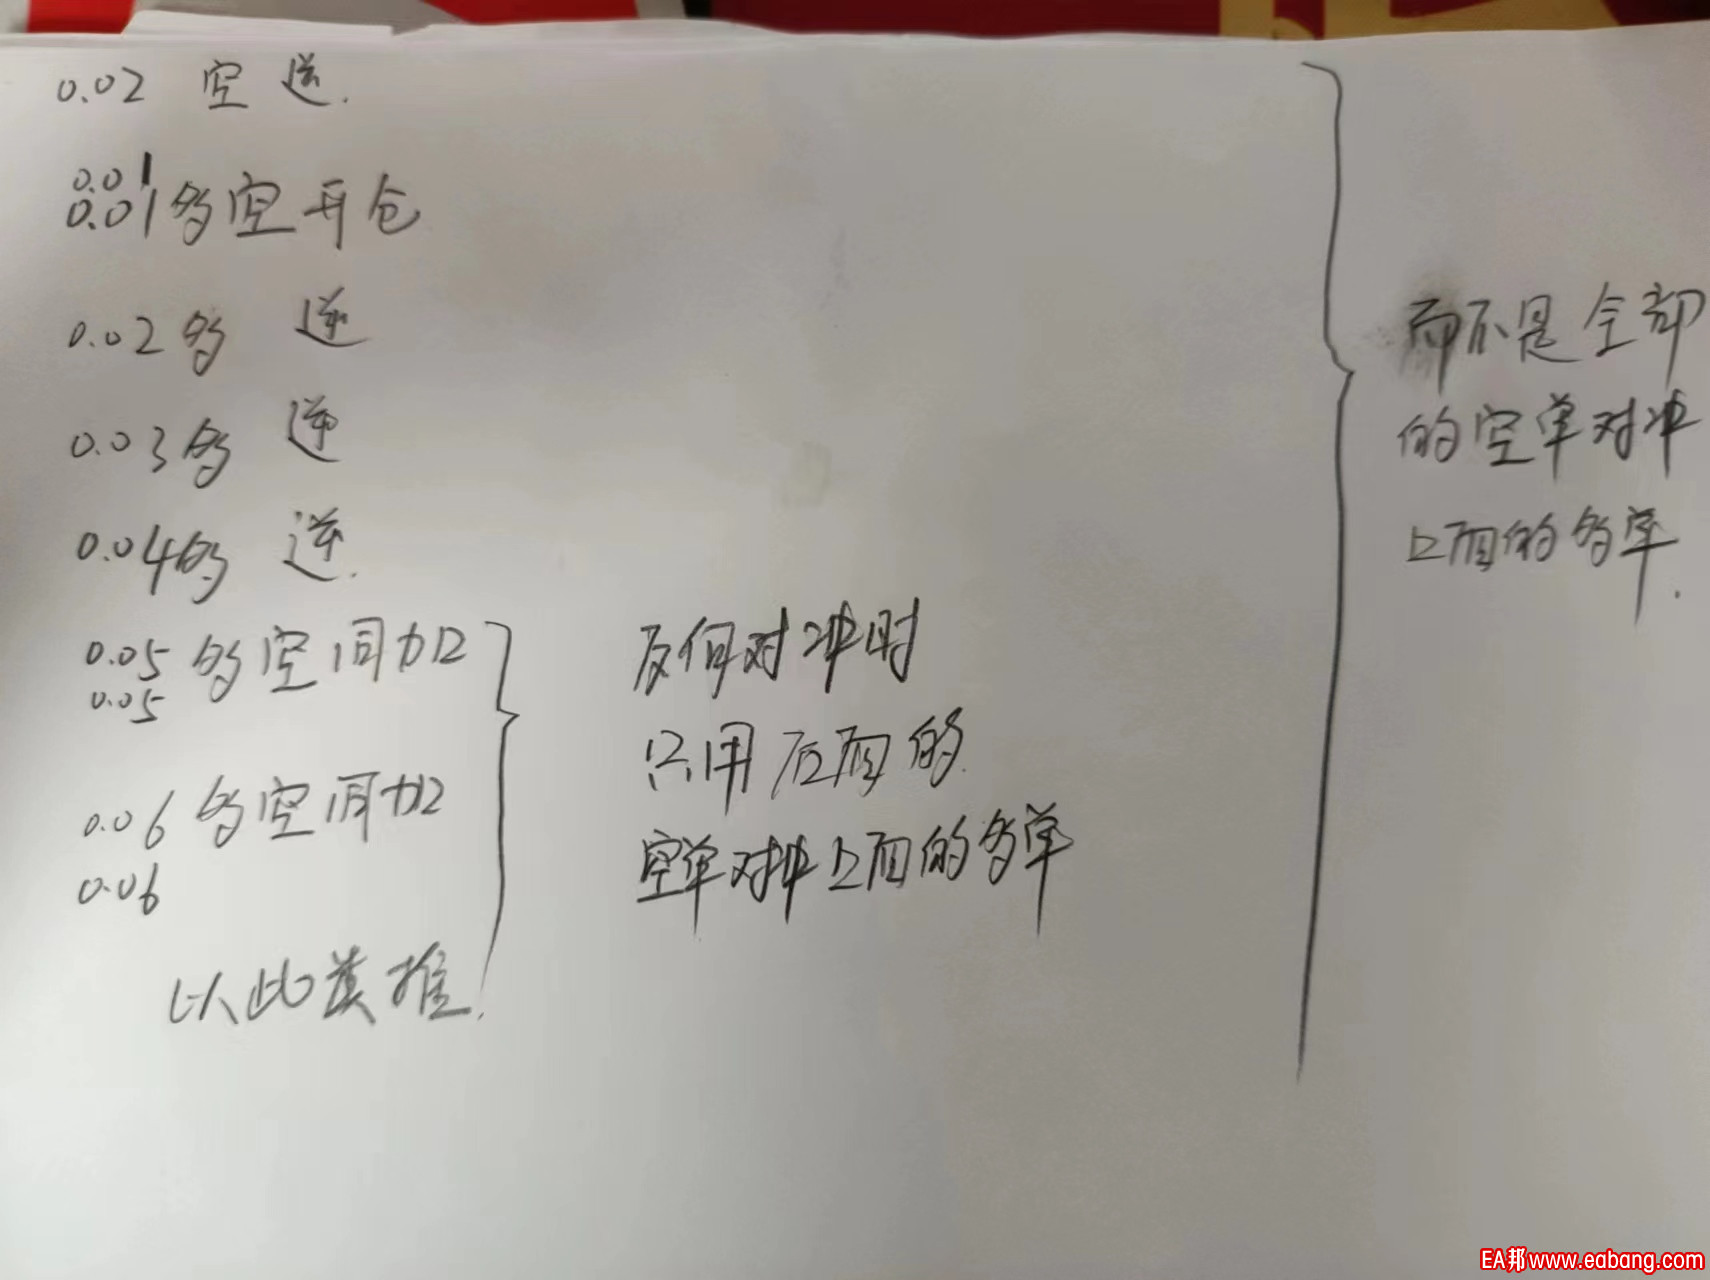 0.02 空 逆.
0.01
0.01 多空开仓
0.02多 逆
0.03多 逆
0.04多 逆.
0.05 多空同加
0.05
0.06 多空同加
0.06
以此类推.
反向对冲时
只用后面的
空单对冲上面的多单
而不是全部
的空单对冲
上面的多单.
EA邦www.eabang.com